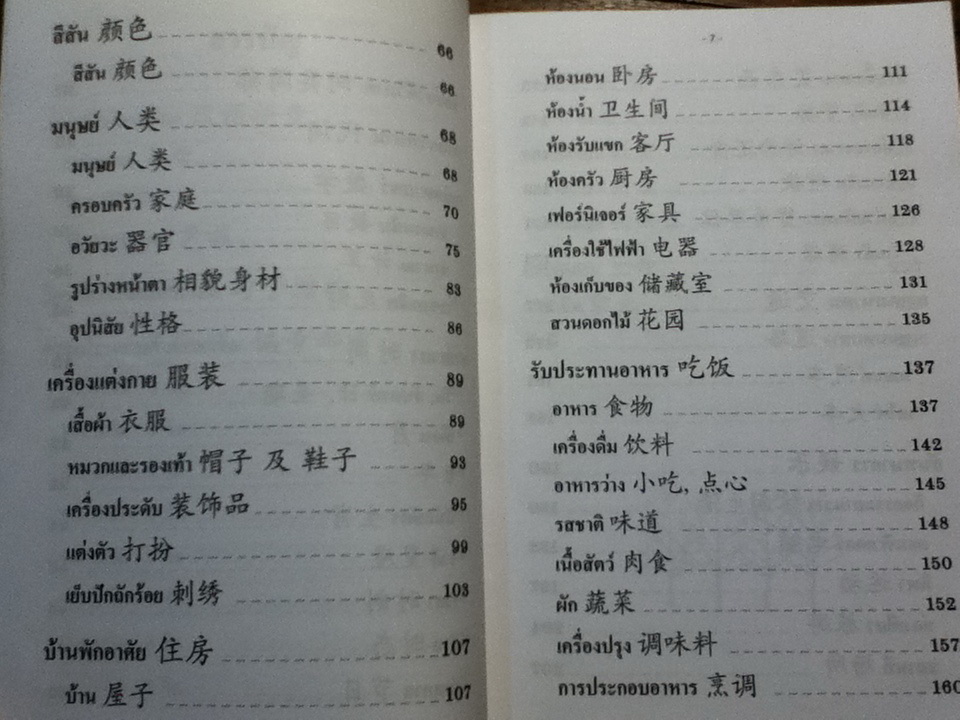 สีสัน 颜色 66
สีสัน 颜色 66
มนุษย์ 人类 68
มนุษย์ 人类 68
ครอบครัว 家庭 70
อวัยวะ 器官 75
รูปร่างหน้าตา 相貌身材 83
อุปนิสัย 性格 86
เครื่องแต่งกาย 服装 89
เสื้อผ้า 衣服 89
หมวกและรองเท้า 帽子 及 鞋子 93
เครื่องประดับ 装饰品 95
แต่งตัว 打扮 99
เย็บปักถักร้อย 刺绣 103
บ้านพักอาศัย 住房 107
บ้าน 屋子 107
- 7 -
ห้องนอน 卧房 111
ห้องน้ำ 卫生间 114
ห้องรับแขก 客厅 118
ห้องครัว 厨房 121
เฟอร์นิเจอร์ 家具 126
เครื่องใช้ไฟฟ้า 电器 128
ห้องเก็บของ 储藏室 131
สวนดอกไม้ 花园 135
รับประทานอาหาร 吃饭 137
อาหาร 食物 137
เครื่องดื่ม 饮料 142
อาหารว่าง 小吃, 点心 145
รสชาติ 味道 148
เนื้อสัตว์ 肉食 150
ผัก 蔬菜 152
เครื่องปรุง 调味料 157
การประกอบอาหาร 烹调 160